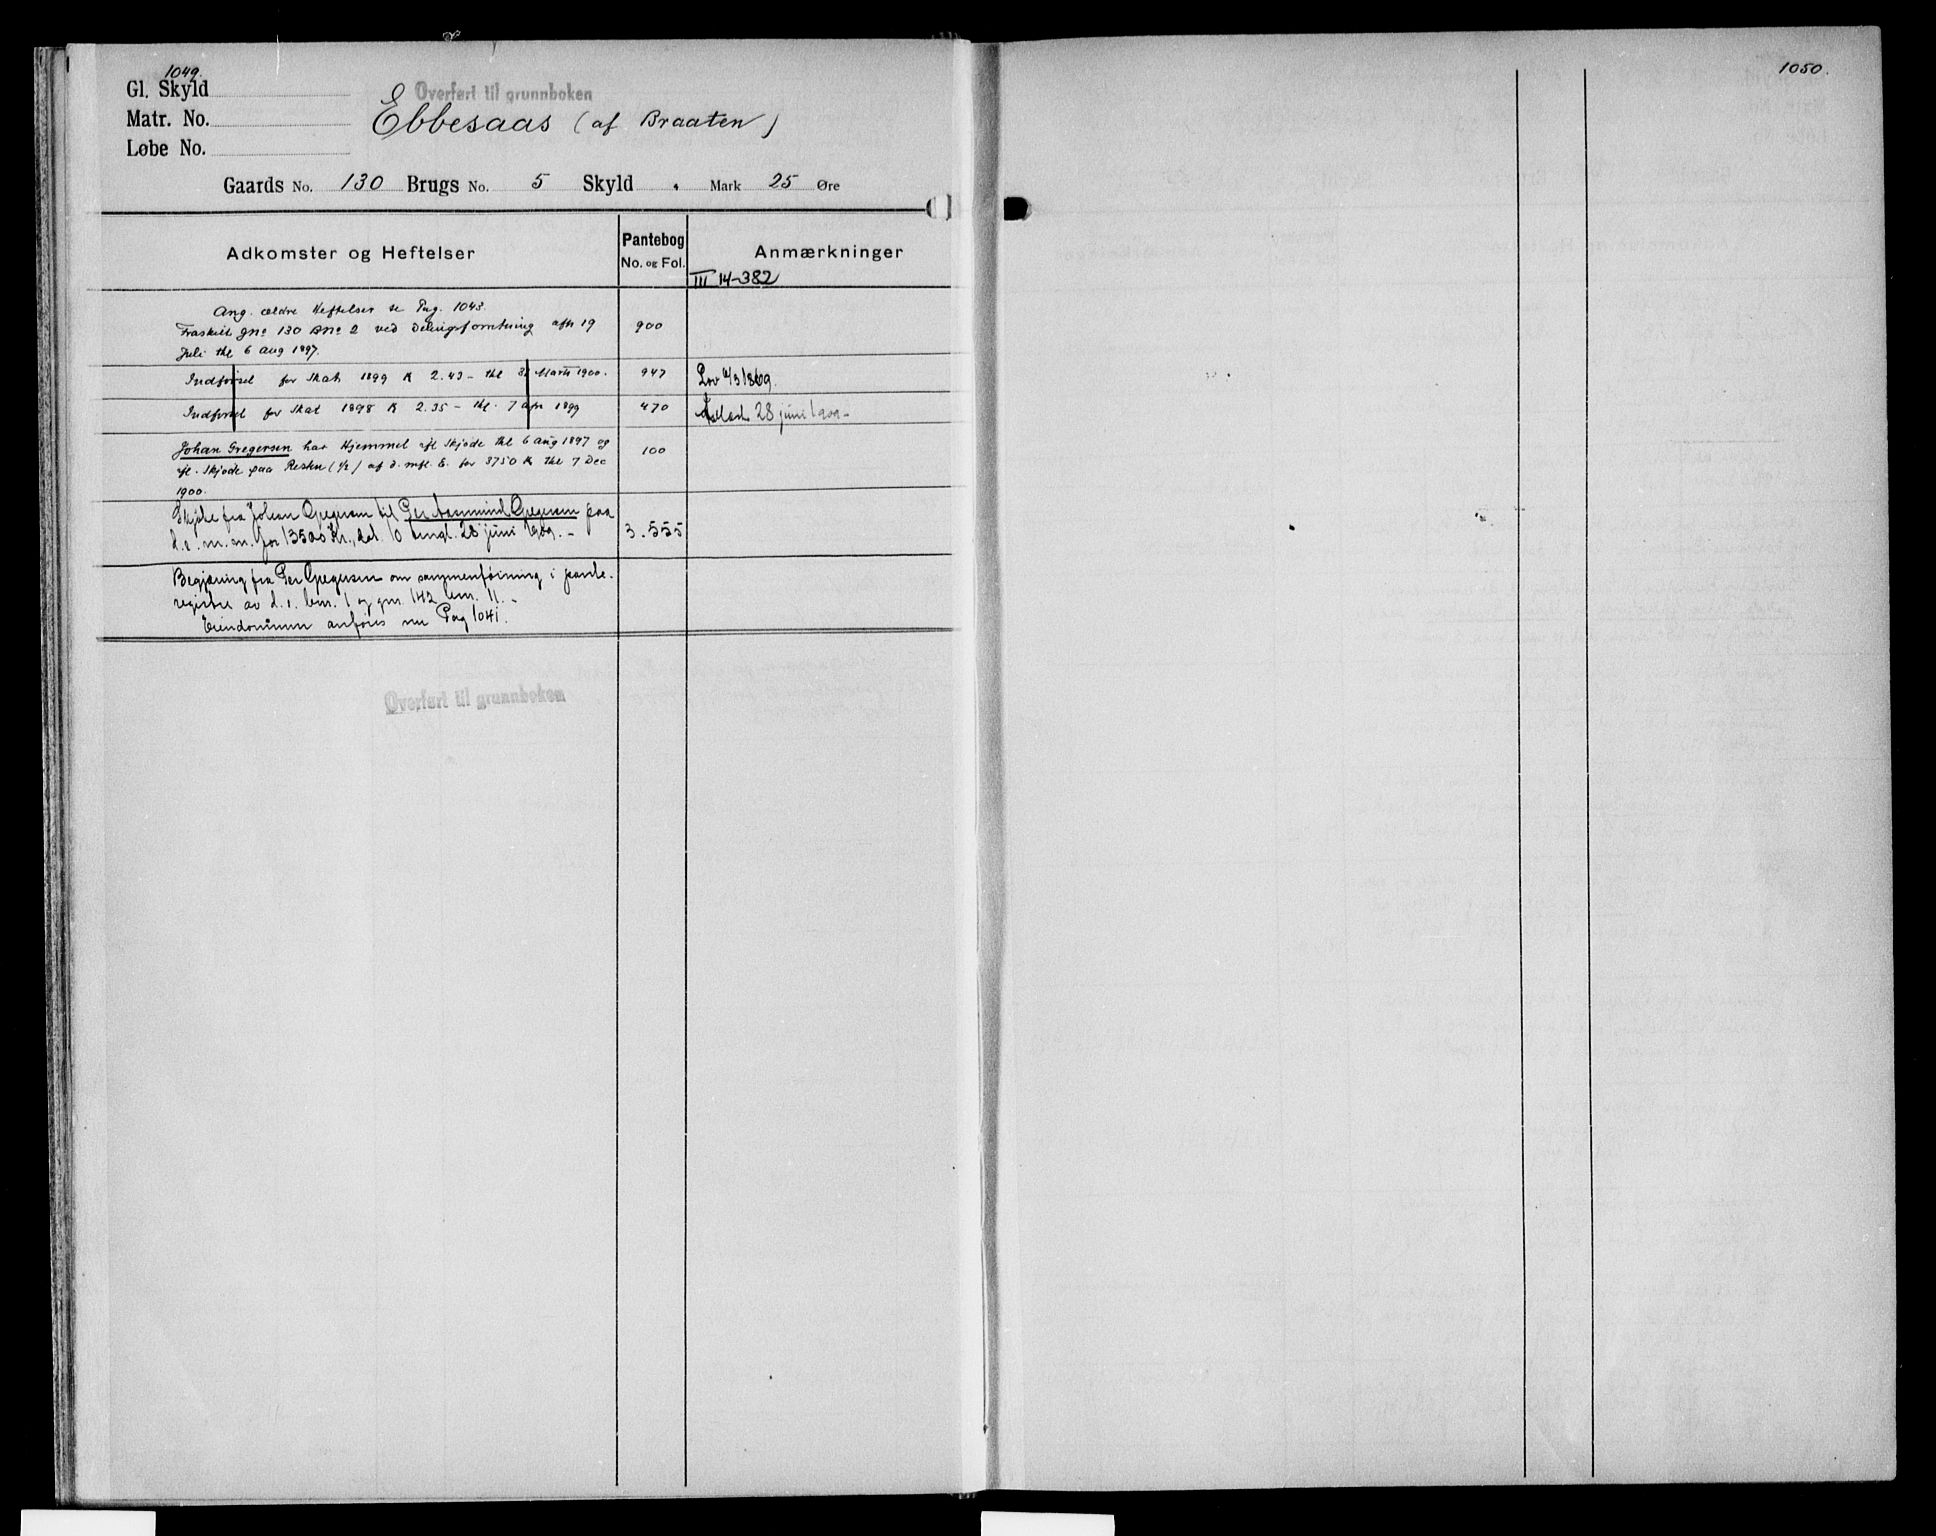 1049.
Gl. Skyld
Overført til grunnboken
Matr. No.
Ebbesaas (af Braaten)
Løbe No.
Gaards No. 130 Brugs No. 5 Skyld . Mark 25 Øre
Adkomster og Heftelser
Pantebog
No. og Fol.
Anmærkninger
III 14-382
Ang. ældre Heftelser se Pag. 1043.
Fraskilt gno 130 Bno 2 ved Delingsforretning afh 19
900
Juli thl 6 Aug 1897.
Indførsel for Skat 1899 K 2.43 - thl 31 Marts 1900.
947
Lov 1869.
Indførsel for Skat 1898 K 2.35 - thl. 7 apr 1899
470
28 juni 1909 -
Johan Gregersen har Hjemmel ifl Skjøde thl 6 Aug 1897 og
100
ifl. Skjøde paa Resten (1/2) af d. mfl. E. for 3750 K thl 7 Dec
1900.
Skjøte fra Johan Gregersen til Per Aasmund Gregersen paa
d.e. m. m. for 13500 Kr., dat. 10 tingl. 28 juni 1909. -
3.555
Begjæring fra Per Gregersen om sammenføining i pante-
registret av d.e. bnr. 1 og gnr. 142 bnr. 11. -
Eiendommen anføres nu Pag 1041.
Overført til grunnboken
1050.